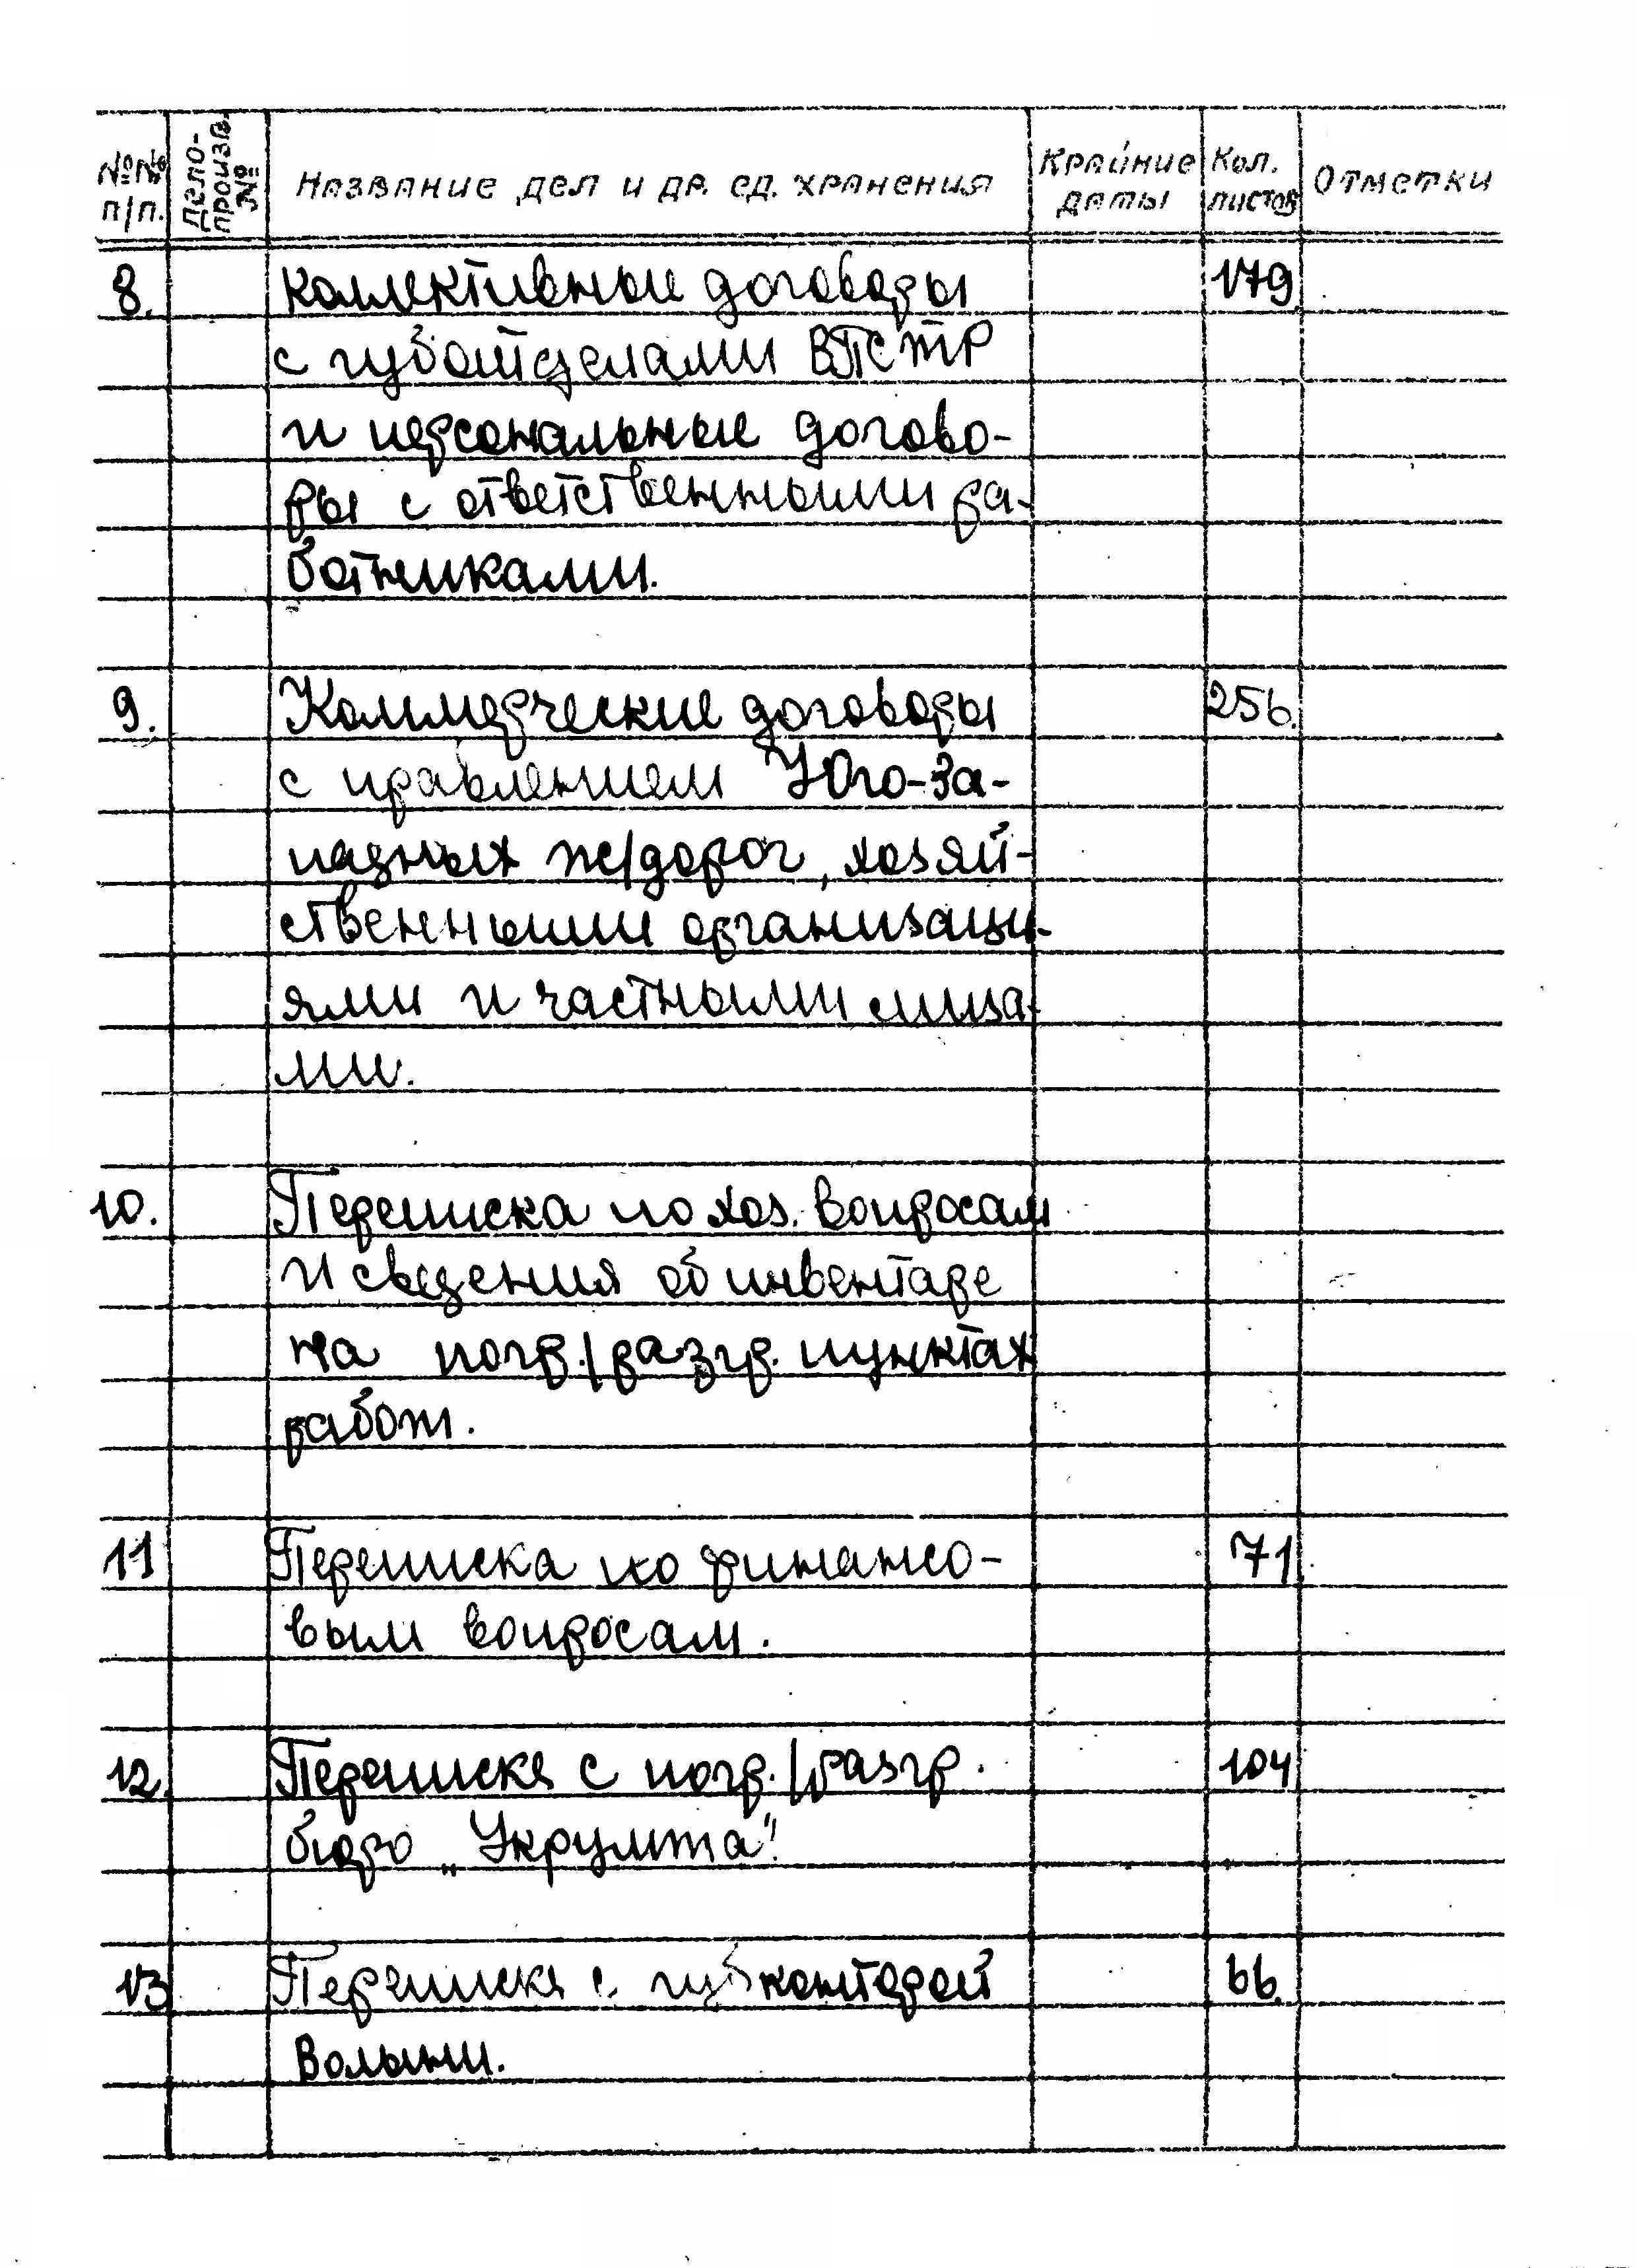 №№ п/п. Дело-произв. № Название дел и др. ед. хранения Крайние даты Кол. листов Отметки
8. Коллективные договоры 179
с губотделами ВПСТР
и персональные догово-
ры с ответственными ра-
ботниками.
9. Коммерческие договоры 256.
с правлением Юго-За-
падных ж/дорог, хозяй-
ственными организаци-
ями и частными лица-
ми.
10. Переписка по хоз. вопросам
и сведения об инвентаре
на погр./разгр. пунктах
работ.
11 Переписка по финансо- 71
вым вопросам.
12. Переписка с погр./разгр. 104
бюро „Укрумта".
13 Переписка с губконторой 66.
Волыни.